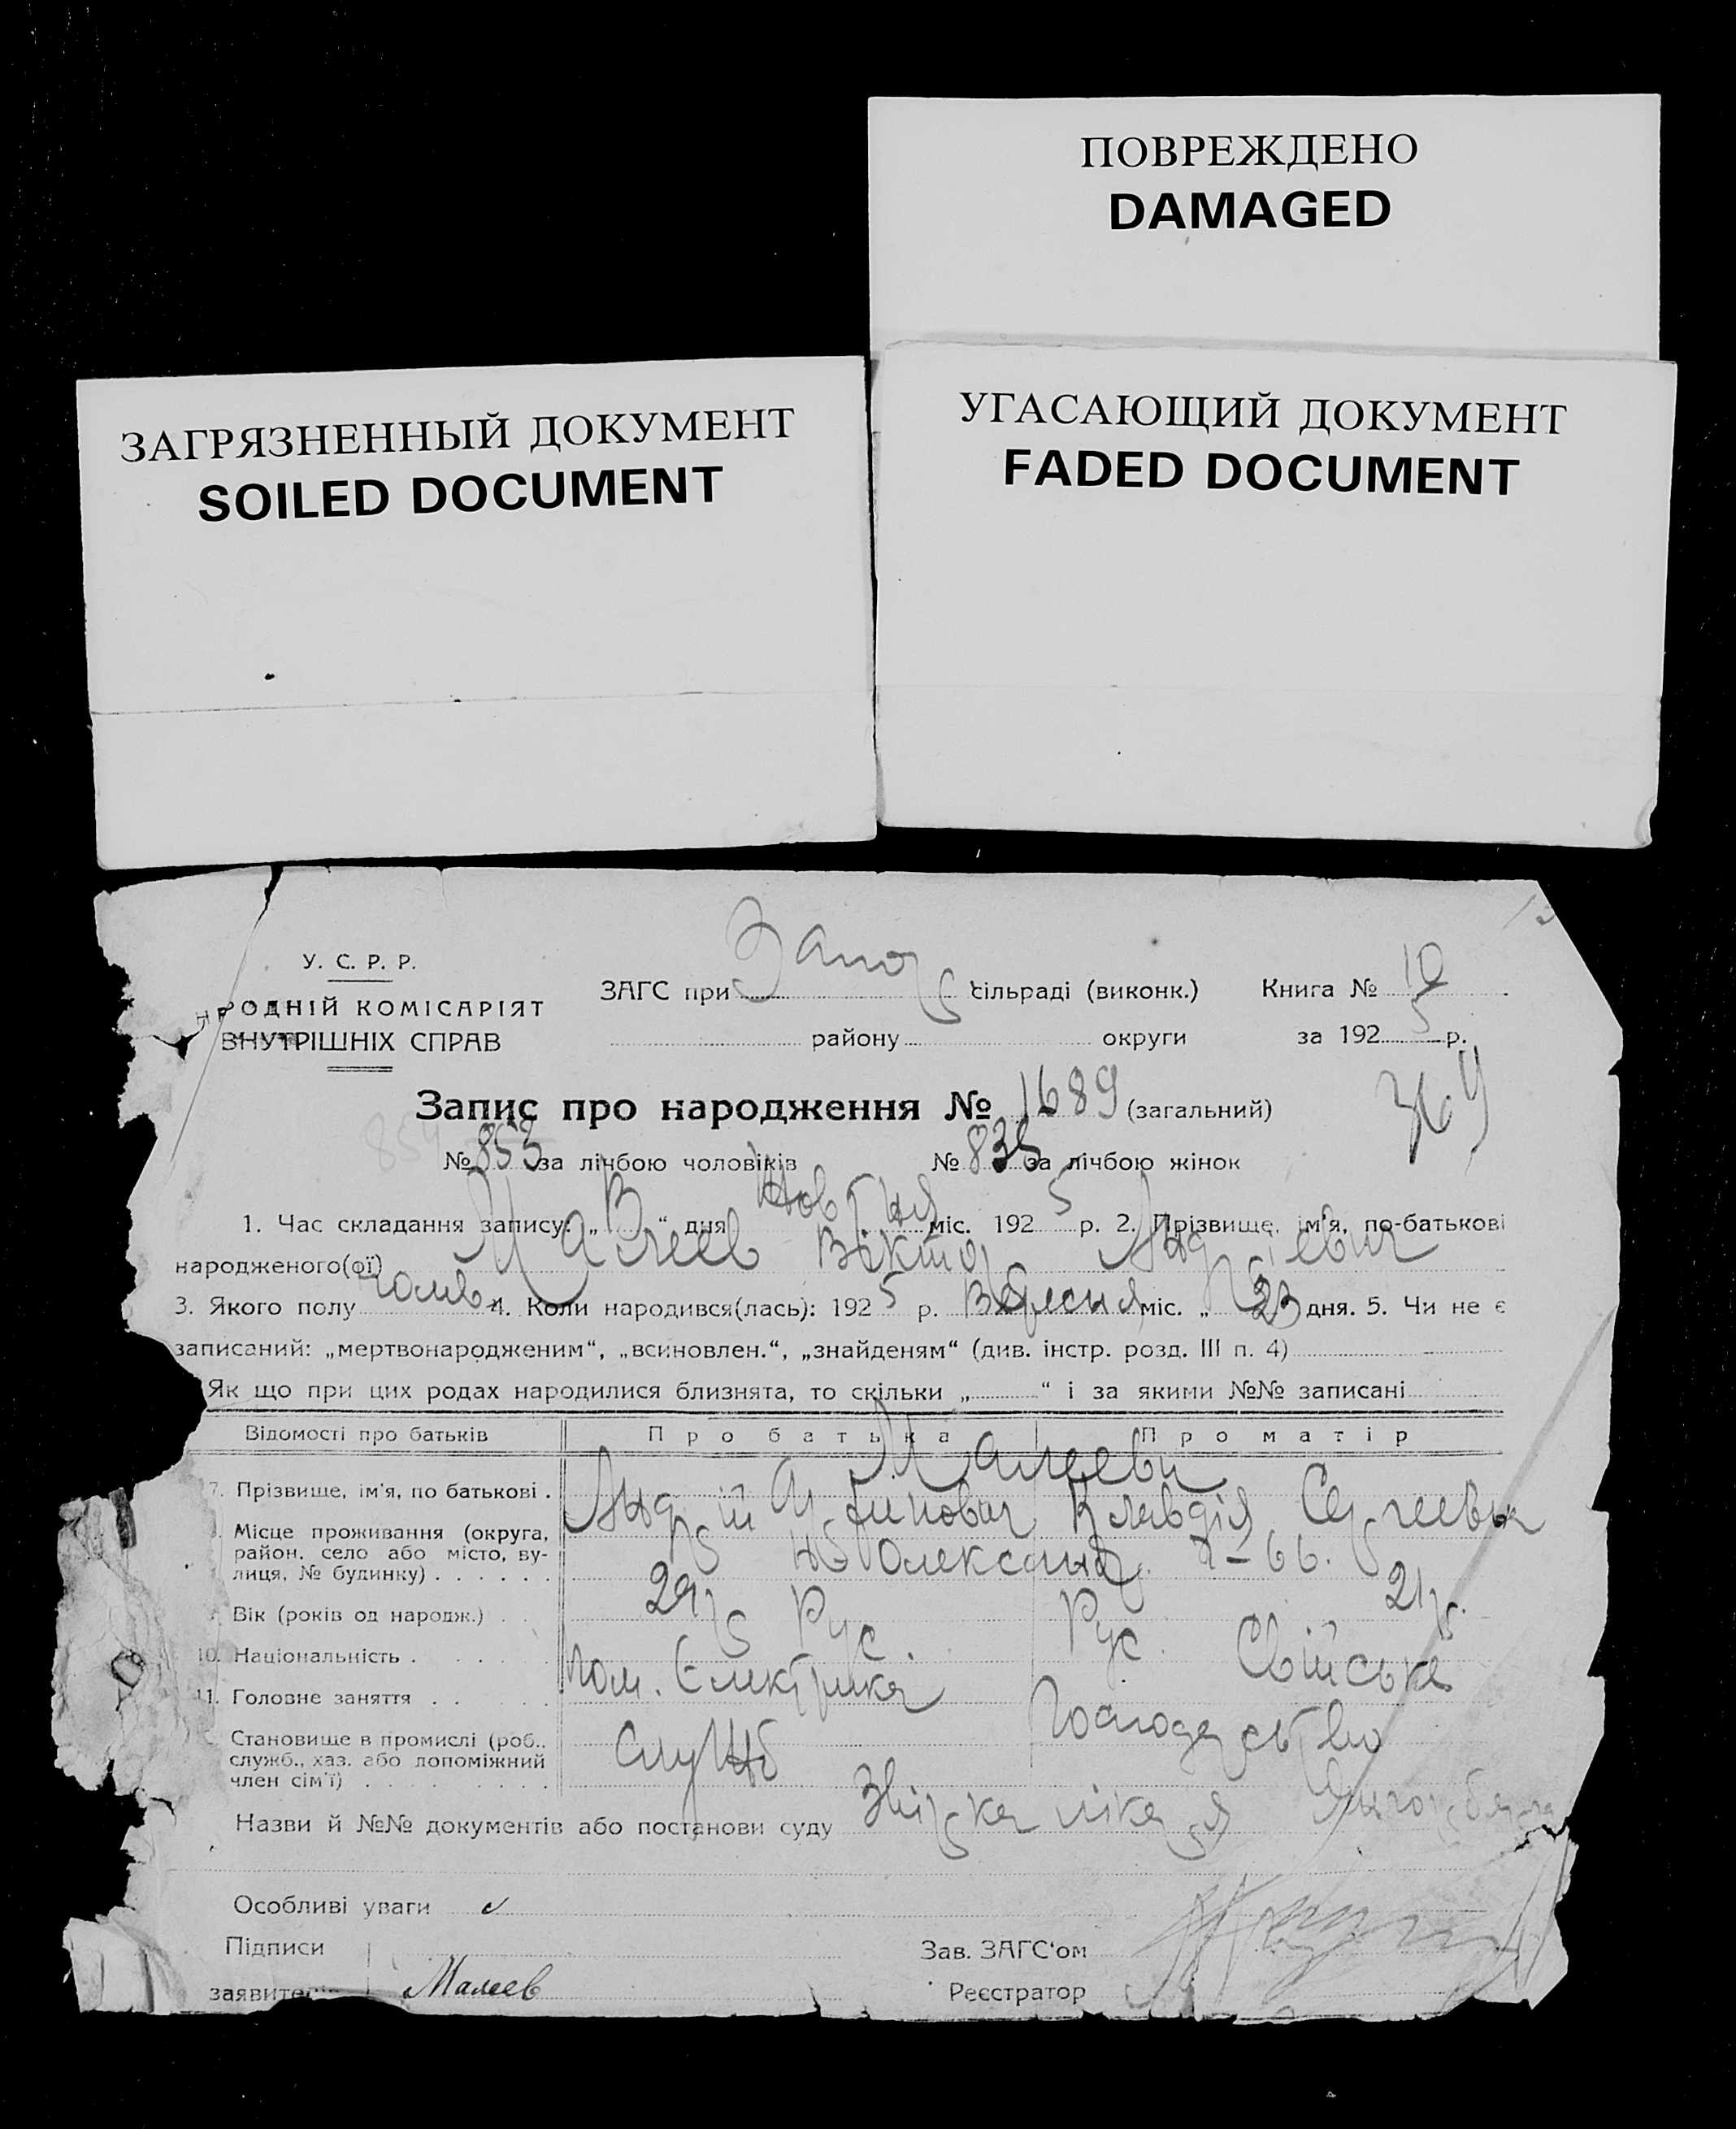 ПОВРЕЖДЕНО
DAMAGED
ЗАГРЯЗНЕННЫЙ ДОКУМЕНТ
SOILED DOCUMENT
УГАСАЮЩИЙ ДОКУМЕНТ
FADED DOCUMENT
У. С. Р. Р.
РОДНІЙ КОМІСАРІЯТ
ВНУТРІШНІХ СПРАВ
ЗАГС при Запор сільраді (виконк.) Книга № 10
району округи за 1925 р.
Запис про народження № 1689 (загальний)
№ 853 за лічбою чоловіків № 835 за лічбою жінок
1. Час складання запису: „ “ дня Жовтня міс. 1925 р. 2. Прізвище, ім'я, по-батькові
народженого(ої) Малеев Віктор Андрієвич
3. Якого полу чолов 4. Коли народився(лась): 1925 р. Вересня міс. „ 23 дня. 5. Чи не є
записаний: „мертвонародженим“, „всиновлен.“, „знайденям“ (див. інстр. розд. III п. 4)
Як що при цих родах народилися близнята, то скільки „ “ і за якими №№ записані
Відомості про батьків Про батька Про матір
Малеевы
7. Прізвище, ім'я, по батькові . Андрій Клавдія Сергеевна
Місце проживання (округа,
район, село або місто, ву-
лиця, № будинку) . . . . . . Олександ. 66.
Вік (років од народж.) . . 29 р 21 р.
10. Національність . Рус. Рус.
11. Головне заняття . . пом. Електрика Свійське
Господарство
Становище в промислі (роб.,
служб., хаз. або допоміжний
член сім'ї) . . . Служб
Назви й №№ документів або постанови суду Звірка лікаря
Особливі уваги
Підписи Зав. ЗАГС'ом
заявите Малеев Реєстратор